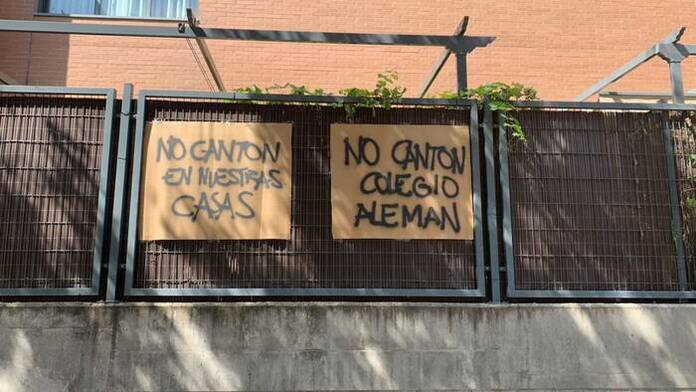 NO CANTON
EN NUESTRAS
CASAS
NO CANTON
COLEGIO
ALEMAN